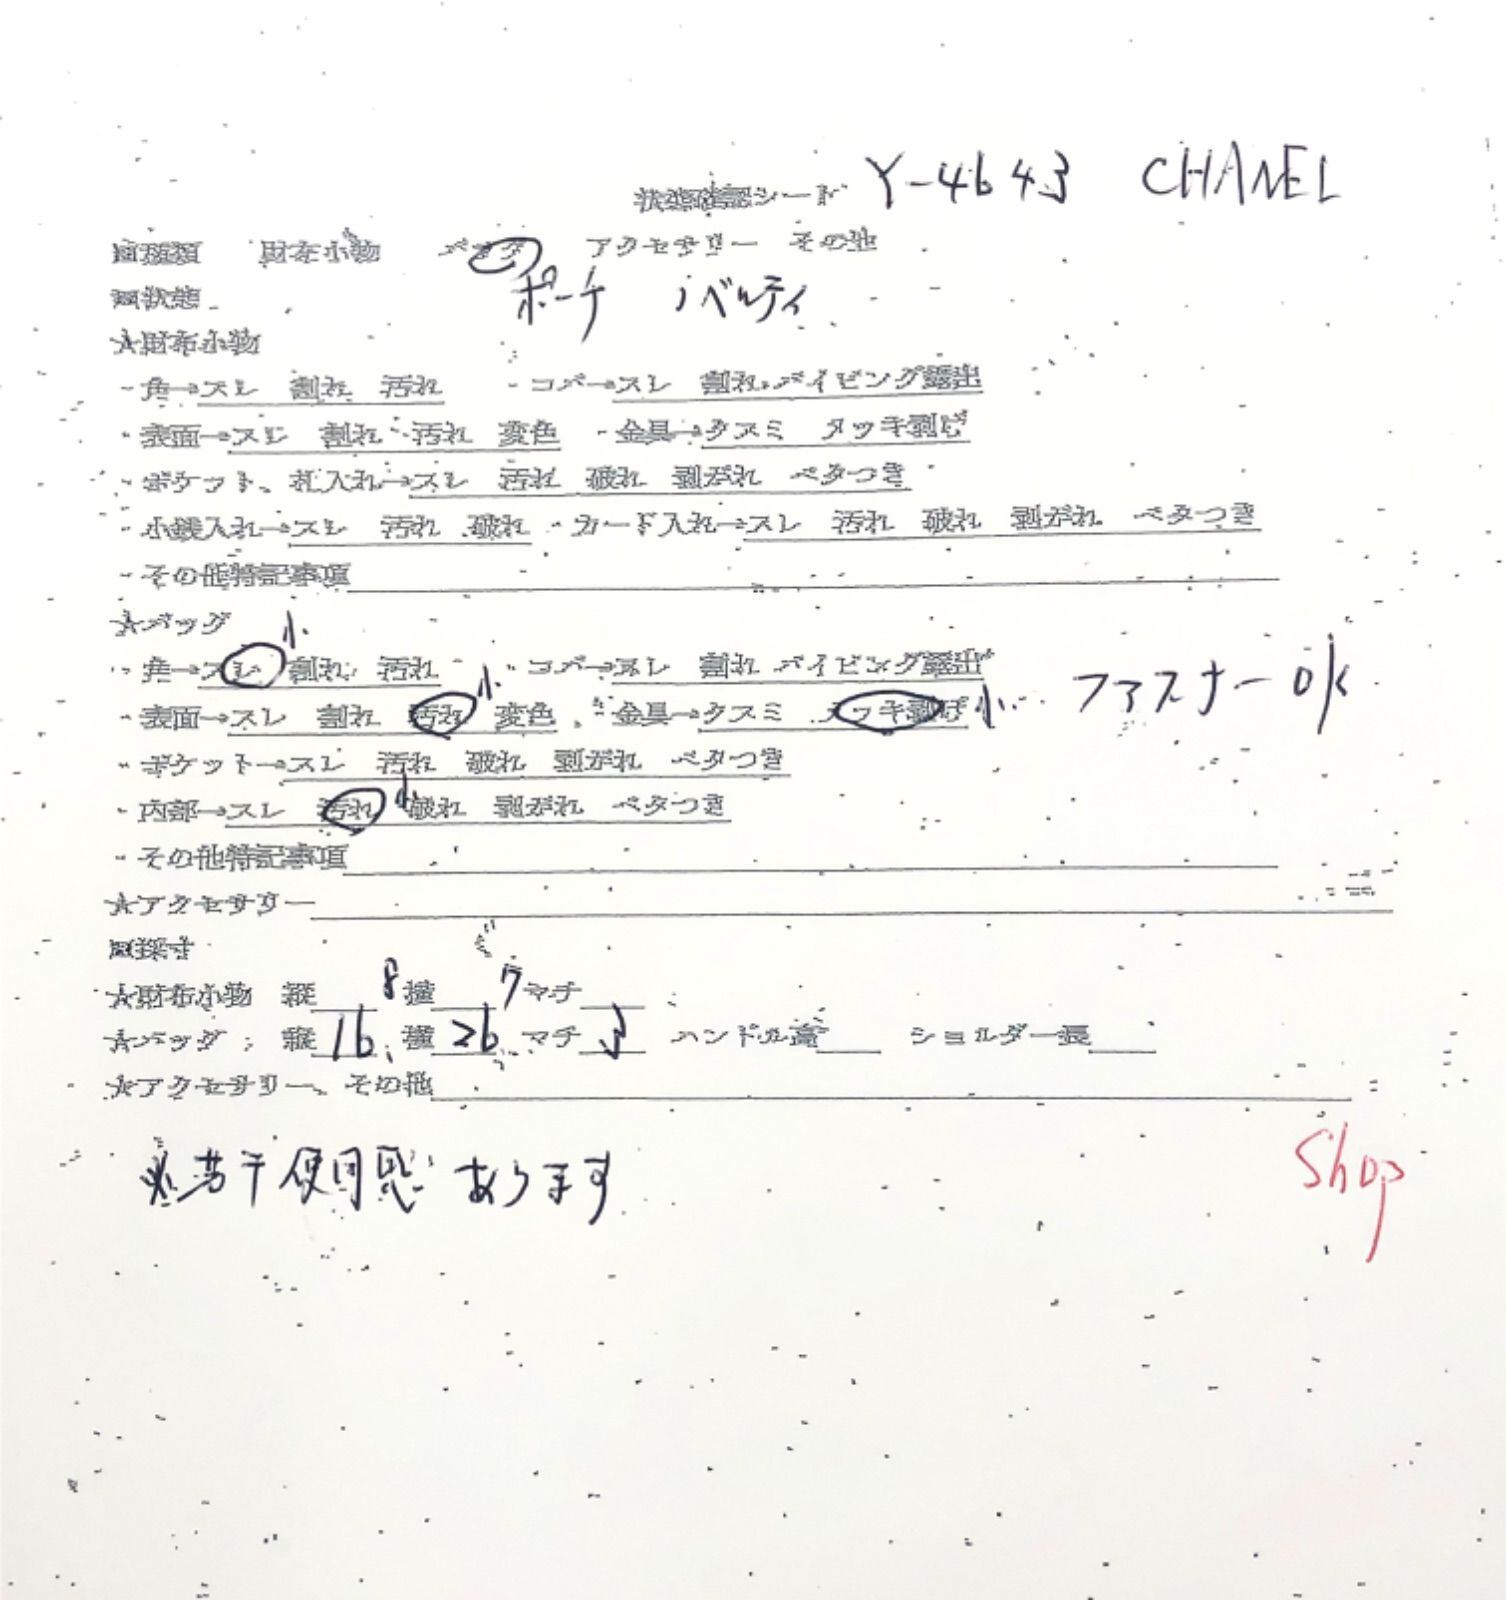 状態確認シート Y-4643 CHANEL
■種類 財布小物 バッグ アクセサリー その他
ポーチ ノベルティ
■状態
★財布小物
・角→スレ 割れ 汚れ ・コバ→スレ 割れ パイピング露出
・表面→スレ 割れ 汚れ 変色 ・金具→クスミ メッキ剥げ
・ポケット、札入れ→スレ 汚れ 破れ 剥がれ ベタつき
・小銭入れ→スレ 汚れ 破れ ・カード入れ→スレ 汚れ 破れ 剥がれ ベタつき
・その他特記事項
★バッグ
・角→スレ 小 割れ 汚れ ・コバ→スレ 割れ パイピング露出
・表面→スレ 割れ 汚れ 小 変色 ・金具→クスミ メッキ剥げ 小 ファスナーOK
・ポケット→スレ 汚れ 破れ 剥がれ ベタつき
・内部→スレ 汚れ 小 破れ 剥がれ ベタつき
・その他特記事項
★アクセサリー
■採寸
★財布小物 縦 8 横 7 マチ
★バッグ 縦 16 横 26 マチ 3 ハンドル高 ショルダー長
★アクセサリー、その他
※若干使用感あります
Shop